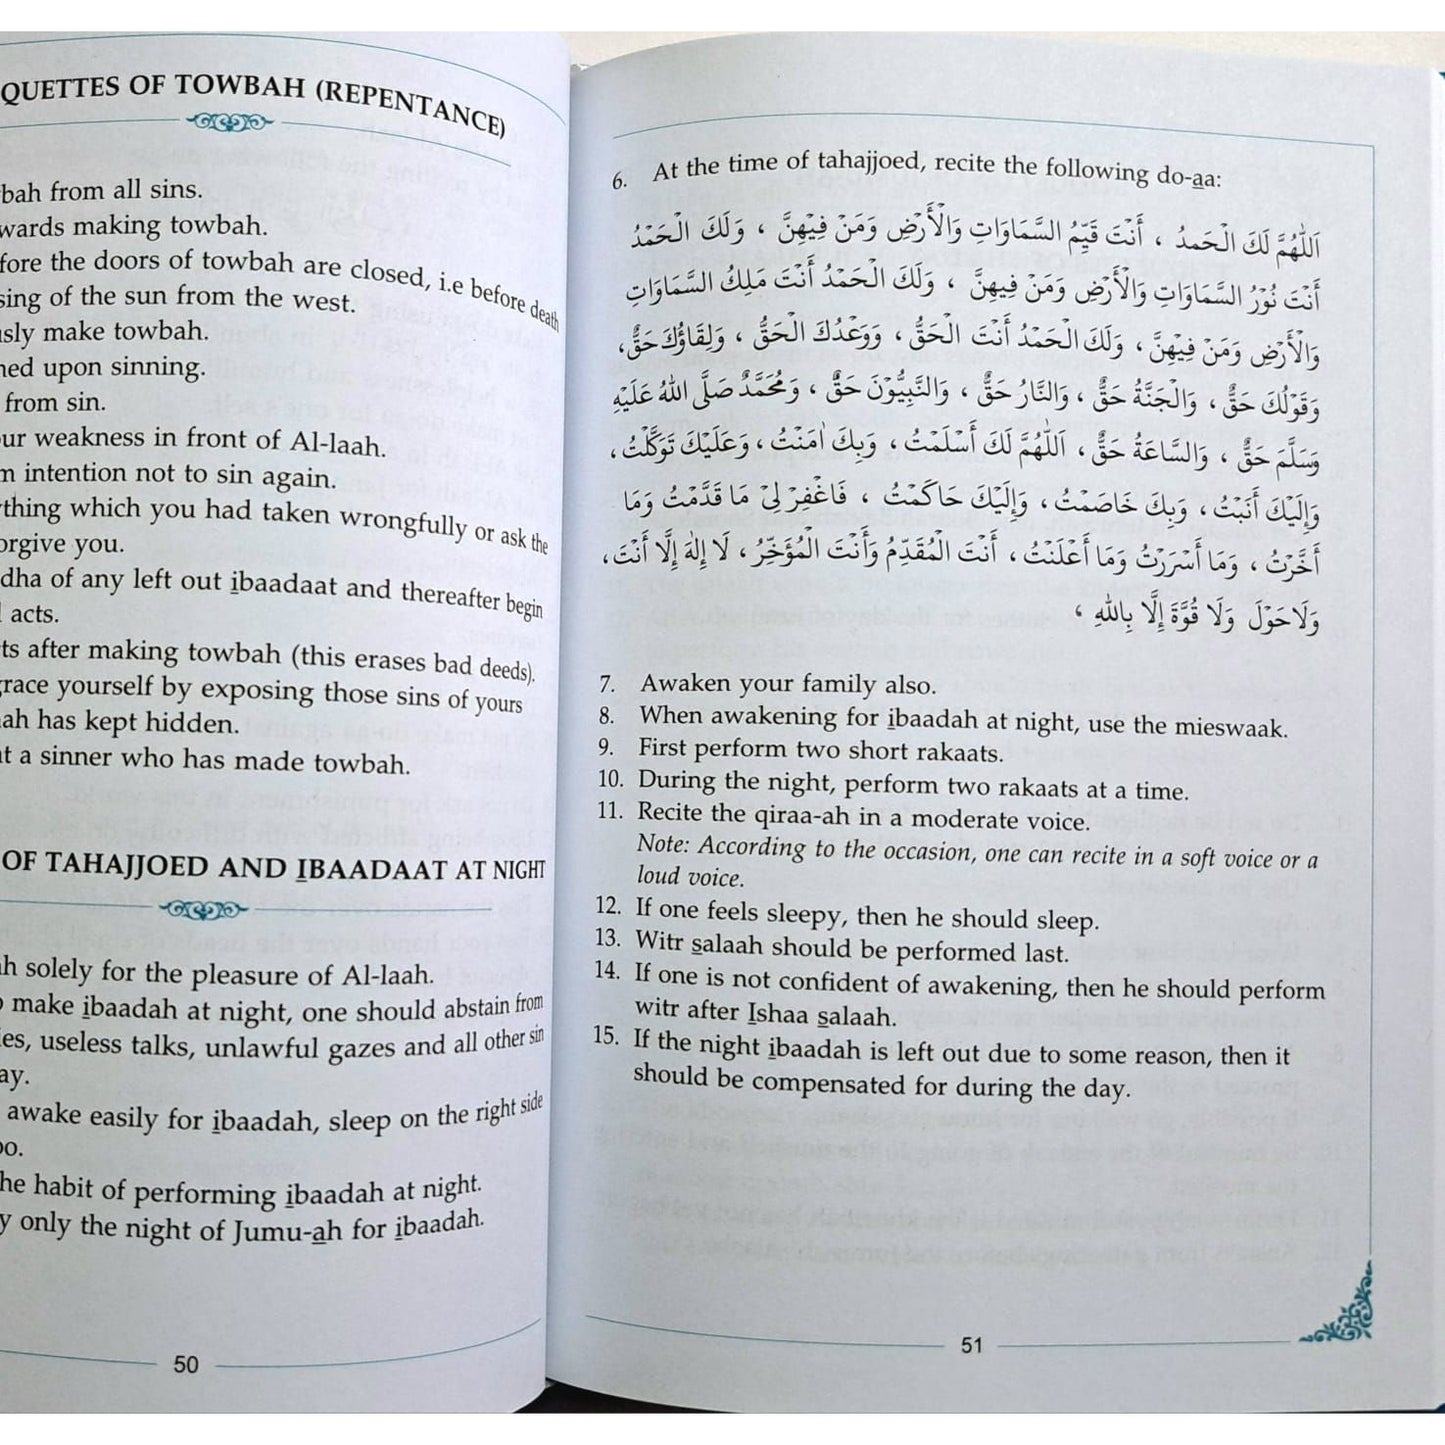 QUETTES OF TOWBAH (REPENTANCE)
bah from all sins.
wards making towbah.
fore the doors of towbah are closed, i.e before death
sing of the sun from the west.
sly make towbah.
ned upon sinning.
from sin.
ur weakness in front of Al-laah.
m intention not to sin again.
thing which you had taken wrongfully or ask the
orgive you.
dha of any left out ibaadaat and thereafter begin
acts.
ts after making towbah (this erases bad deeds).
race yourself by exposing those sins of yours
ah has kept hidden.
t a sinner who has made towbah.
OF TAHAJJOED AND IBAADAAT AT NIGHT
h solely for the pleasure of Al-laah.
o make ibaadah at night, one should abstain from
es, useless talks, unlawful gazes and all other sin
ay.
awake easily for ibaadah, sleep on the right side
oo.
he habit of performing ibaadah at night.
y only the night of Jumu-ah for ibaadah.
50
6. At the time of tahajjoed, recite the following do-aa:
اَللّٰهُمَّ لَكَ الْحَمدُ ، أَنْتَ قَيِّمُ السَّمَاوَاتِ وَالْأَرْضِ وَمَنْ فِيْهِنَّ ، وَلَكَ الْحَمْدُ
أَنْتَ نُوْرُ السَّمَاوَاتِ وَالْأَرْضِ وَمَنْ فِيهِنَّ ، وَلَكَ الْحَمْدُ أَنْتَ مَلِكُ السَّمَاوَاتِ
وَالْأَرْضِ وَمَنْ فِيْهِنَّ ، وَلَكَ الْحَمْدُ أَنْتَ الْحَقُّ ، وَوَعْدُكَ الْحَقُّ ، وَلِقَاؤُكَ حَقٌّ،
وَقَوْلُكَ حَقٌّ ، وَالْجَنَّةُ حَقٌّ ، وَالنَّارُ حَقٌّ ، وَالنَّبِيُّوْنَ حَقٌّ ، وَمُحَمَّدٌ صَلَّى اللهُ عَلَيْهِ
وَسَلَّمَ حَقٌّ ، وَالسَّاعَةُ حَقٌّ ، اَللّٰهُمَّ لَكَ أَسْلَمْتُ ، وَبِكَ اٰمَنْتُ ، وَعَلَيْكَ تَوَكَّلْتُ ،
وَإِلَيْكَ أَنَبْتُ ، وَبِكَ خَاصَمْتُ ، وَإِلَيْكَ حَاكَمْتُ ، فَاغْفِرْ لِيْ مَا قَدَّمْتُ وَمَا
أَخَّرْتُ ، وَمَا أَسْرَرْتُ وَمَا أَعْلَنْتُ ، أَنْتَ الْمُقَدِّمُ وَأَنْتَ الْمُؤَخِّرُ ، لَا إِلٰهَ إِلَّا أَنْتَ ،
وَلَا حَوْلَ وَلَا قُوَّةَ إِلَّا بِاللهِ ،
7. Awaken your family also.
8. When awakening for ibaadah at night, use the mieswaak.
9. First perform two short rakaats.
10. During the night, perform two rakaats at a time.
11. Recite the qiraa-ah in a moderate voice.
Note: According to the occasion, one can recite in a soft voice or a
loud voice.
12. If one feels sleepy, then he should sleep.
13. Witr salaah should be performed last.
14. If one is not confident of awakening, then he should perform
witr after Ishaa salaah.
15. If the night ibaadah is left out due to some reason, then it
should be compensated for during the day.
51